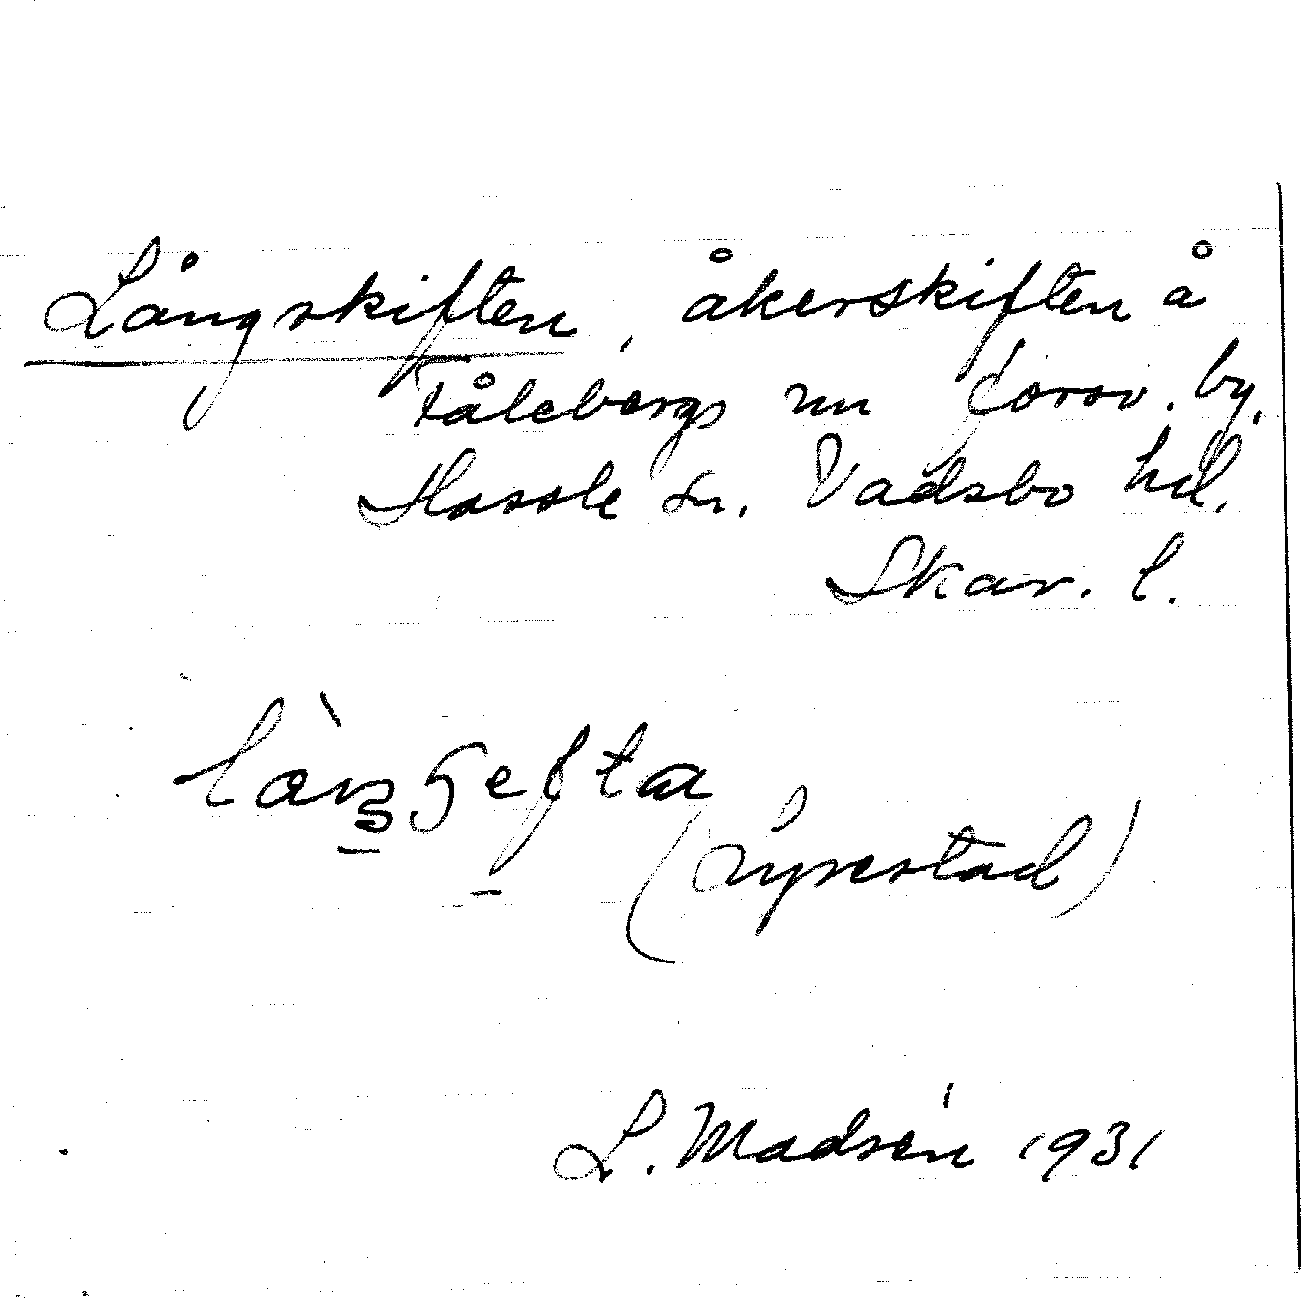 Långskiften, åkerskiften å
Fåleberg nu försv. by,
Hassle sn. Vadsbo hd.
Skar. l.
(Lyrestad)
L. Madsén 1931